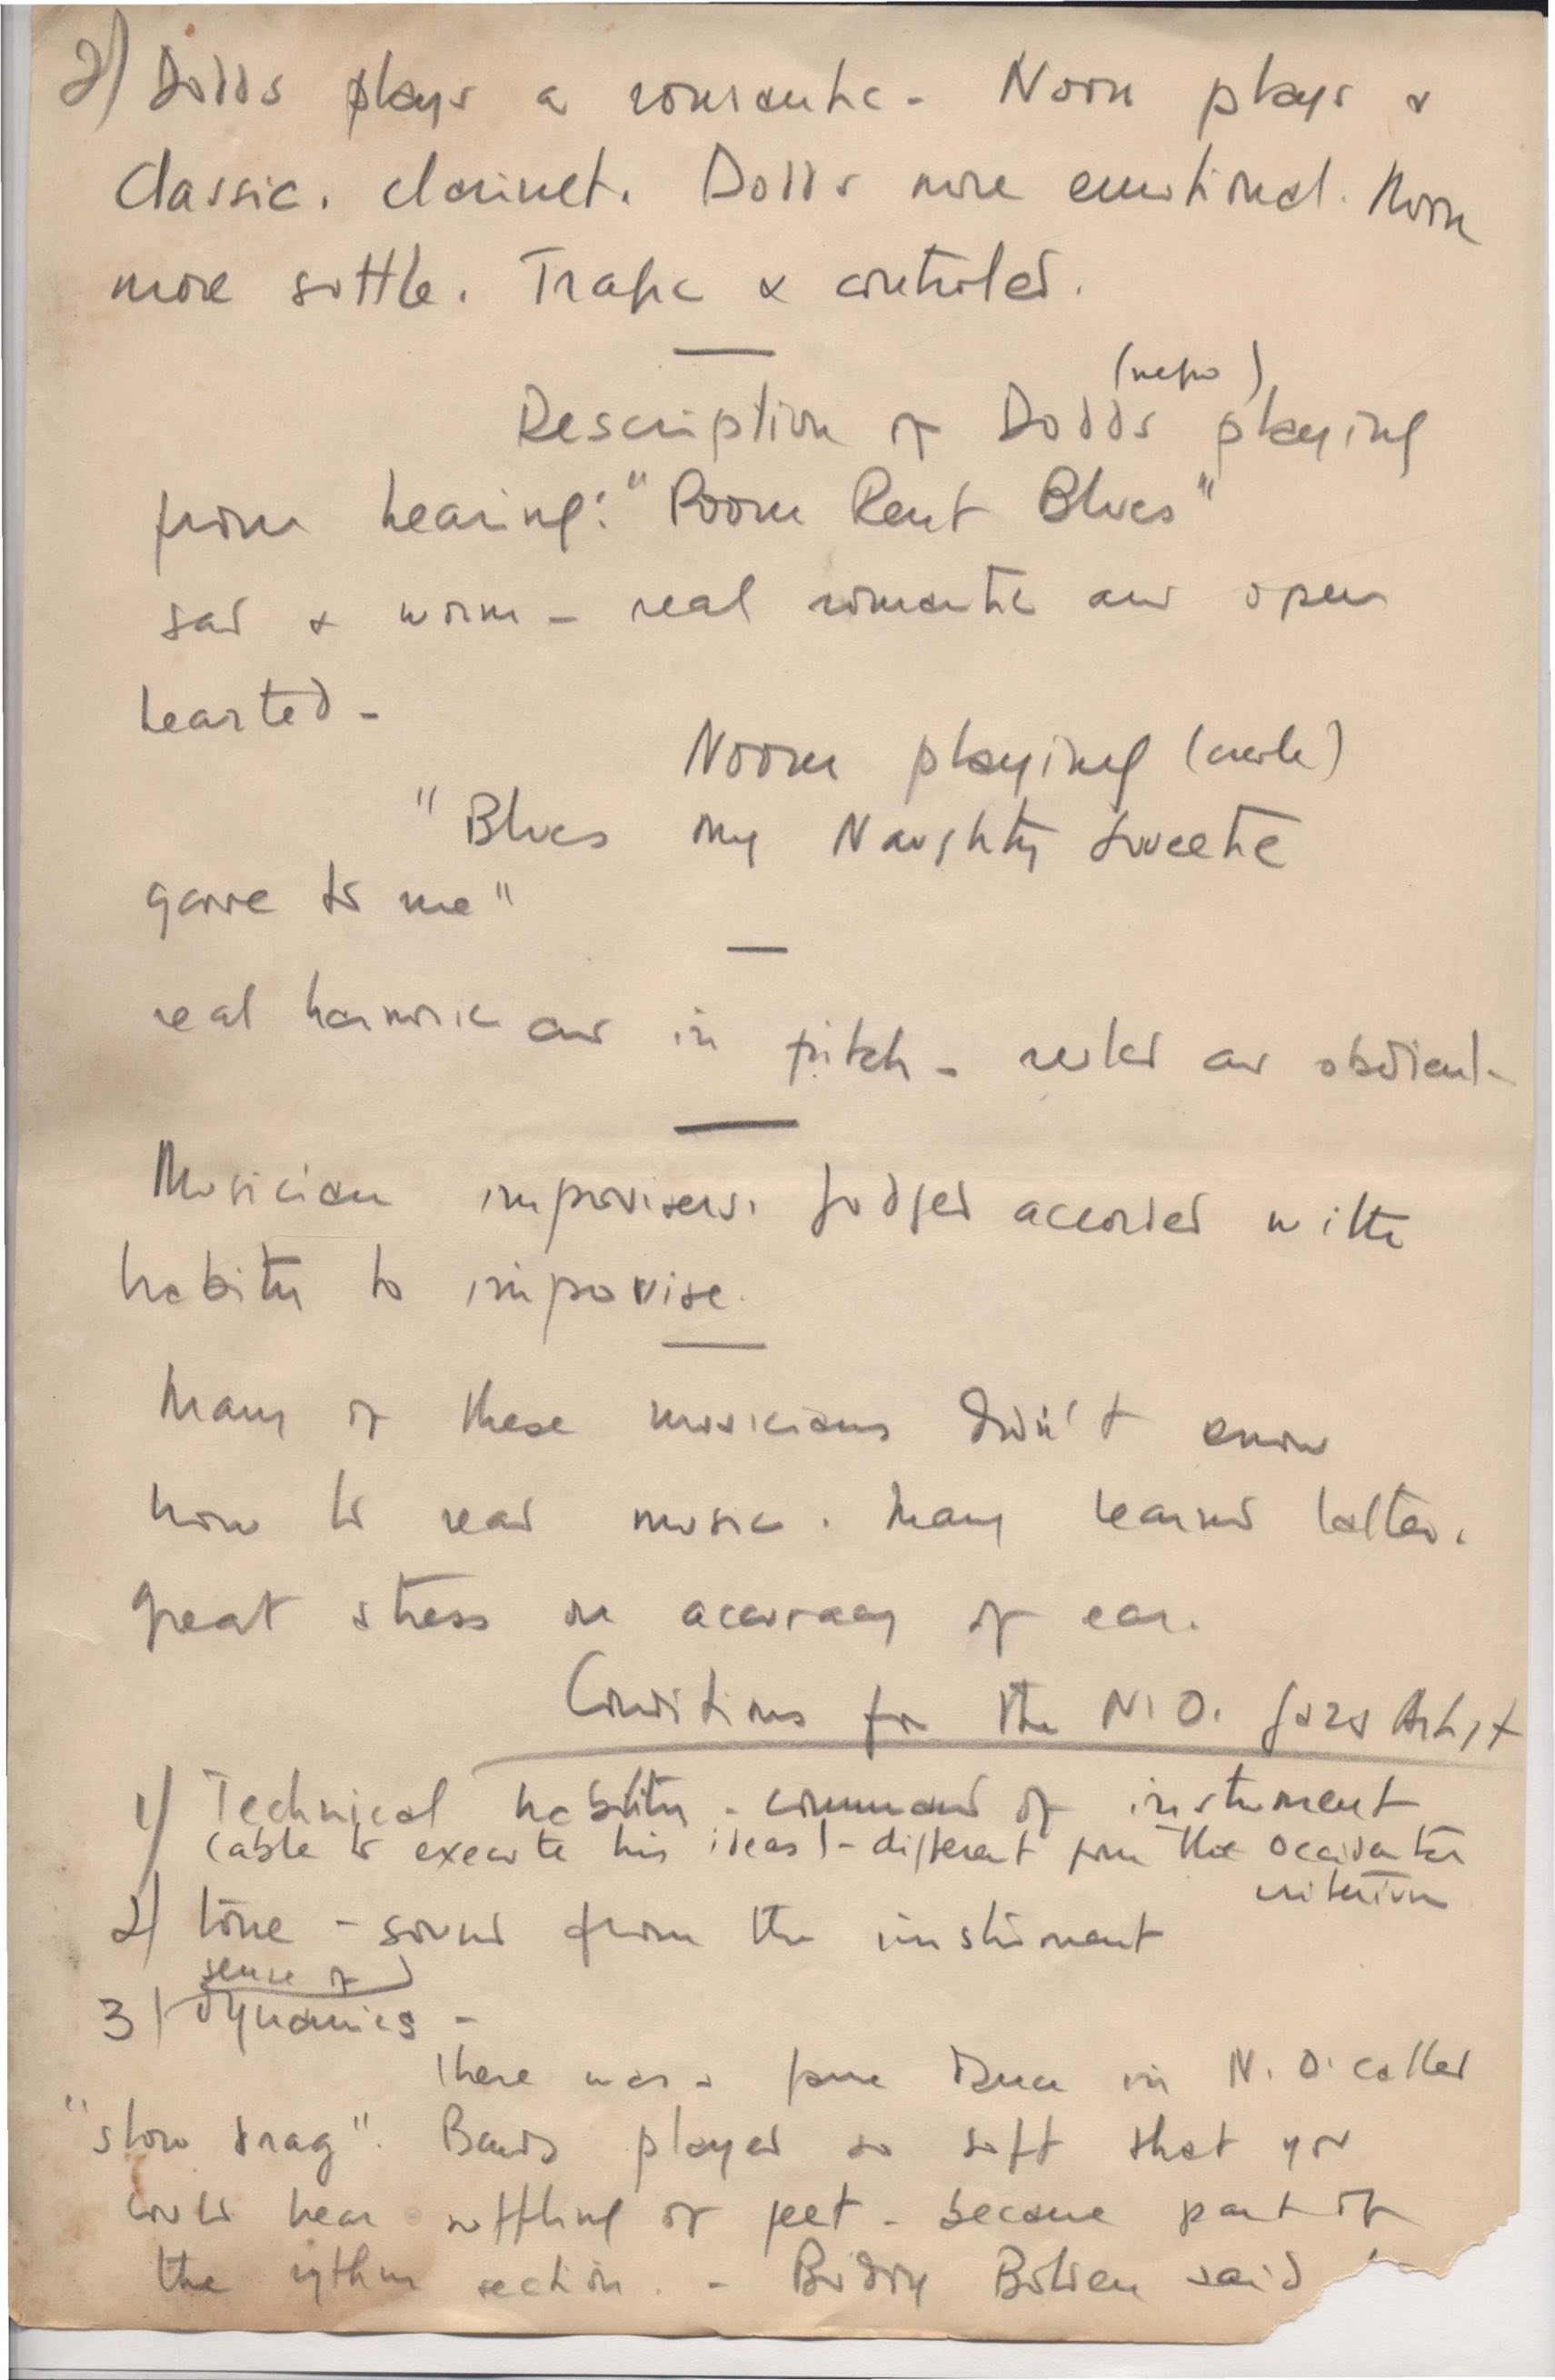 2) Dodds plays a romantic - Noon plays a
classic. clarinet. Dodds more emotional. Noon
more suttle. Tragic & controled.
(negro)
Description of Dodds playing
from hearing: "Room Rent Blues"
sad & worm - real romantic and open
hearted -
Noone playing (creole)
"Blues my Naughty Sweetie
gave to me"
real harmonic and in pitch - ruled and obdient -
Musician improvisers. Judged accorded with
habity to improvise.
Many of these musicians didn't know
how to read music. Many learned latter.
great stress on accuracy of ear.
Conditions for the N.O. Jazz Artist
1) Technical hability - command of instrument
(able to execute his ideas) - different from the occidental
criterium
2) tone - sound from the instrument
sense of
3) dynamics -
there was a dance in N.O. called
"slow drag". Bands played so soft that you
could hear suffling of feet - became part of
the rythm section. - Buddy Bolden said